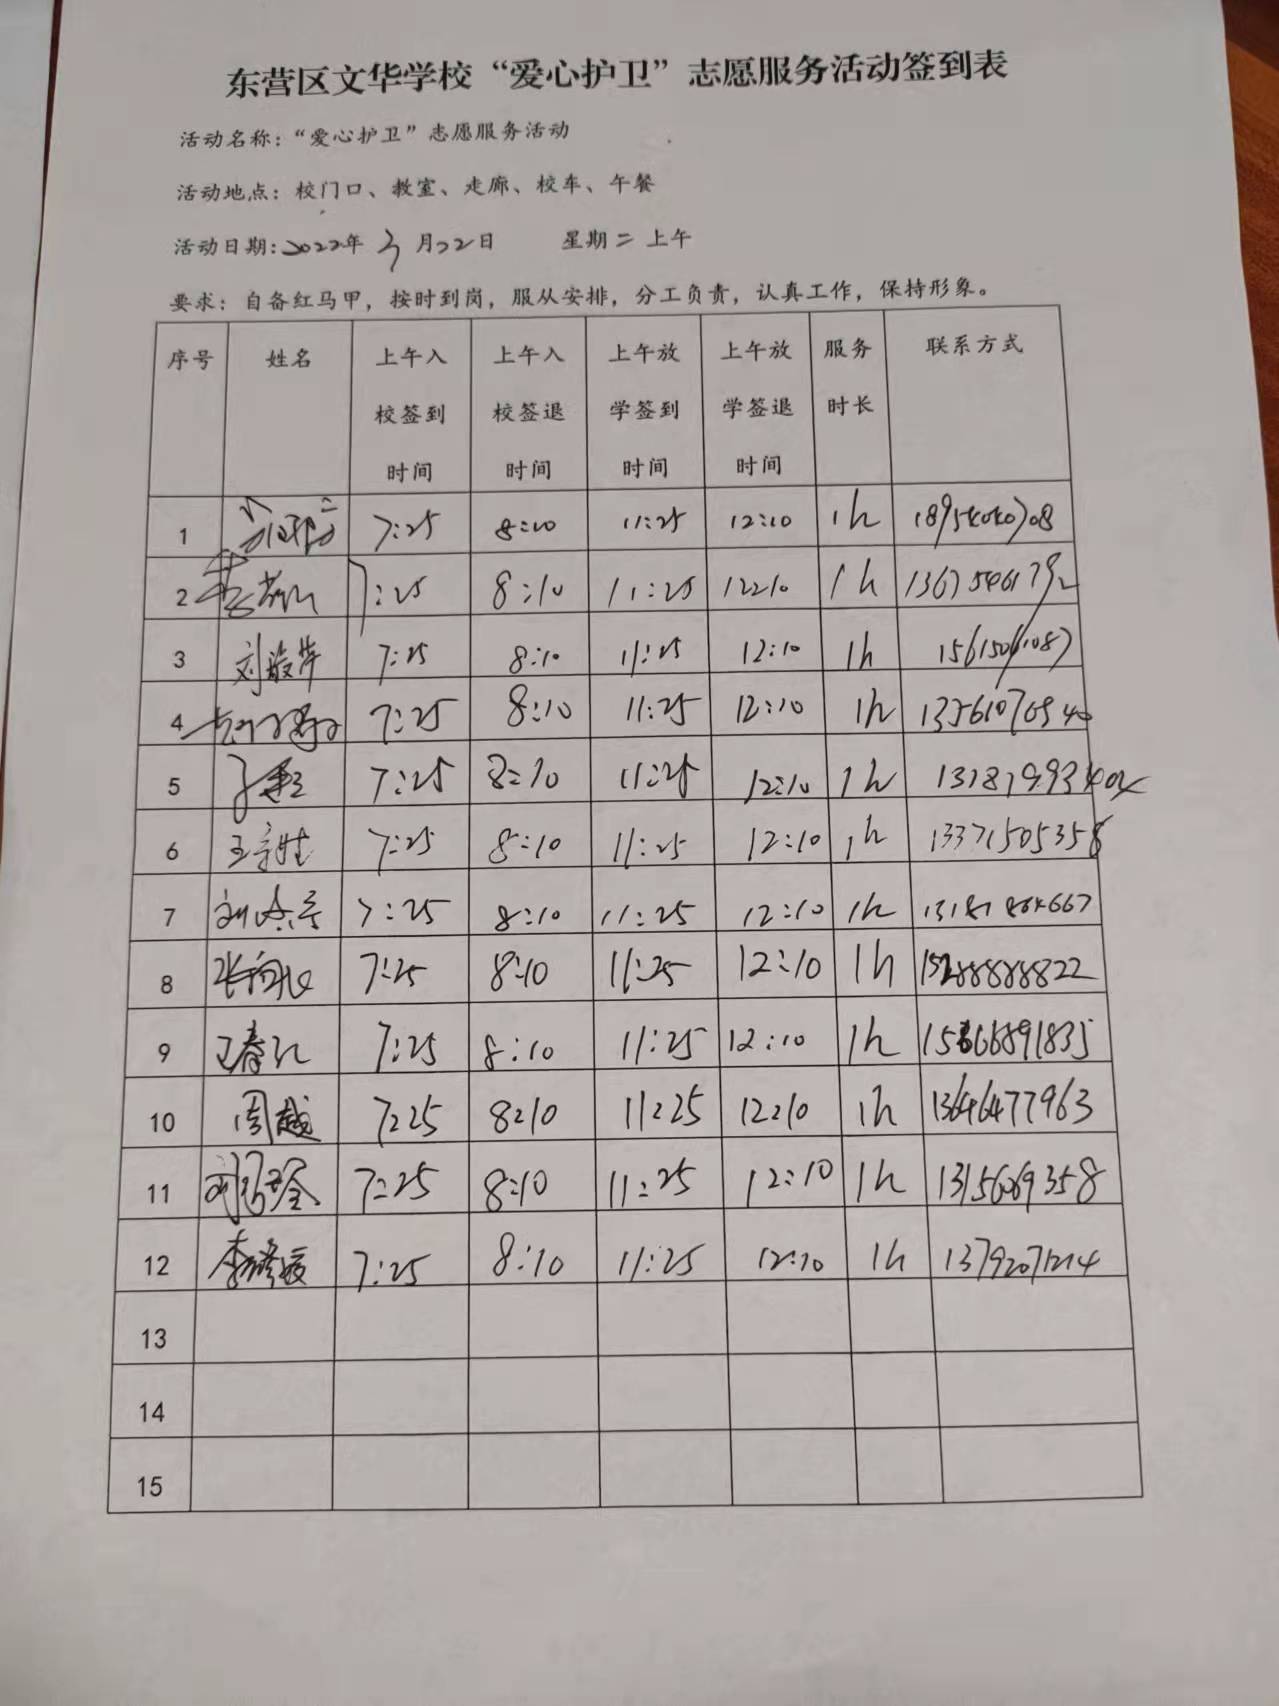 东营区文华学校“爱心护卫”志愿服务活动签到表
活动名称：“爱心护卫”志愿服务活动
活动地点：校门口、教室、走廊、校车、午餐
活动日期：2022年3月22日 星期二 上午
要求：自备红马甲，按时到岗，服从安排，分工负责，认真工作，保持形象。
序号 姓名 上午入校签到时间 上午入校签退时间 上午放学签到时间 上午放学签退时间 服务时长 联系方式
1 7:25 8:10 11:25 12:10 1h
2 7:25 8:10 11:25 12:10 1h
3 7:25 8:10 11:25 12:10 1h
4 7:25 8:10 11:25 12:10 1h
5 7:25 8:10 11:25 12:10 1h
6 7:25 8:10 11:25 12:10 1h 13371505358
7 7:25 8:10 11:25 12:10 1h
8 7:25 8:10 11:25 12:10 1h 15288888822
9 王春江 7:25 8:10 11:25 12:10 1h
10 周越 7:25 8:10 11:25 12:10 1h 13646477963
11 7:25 8:10 11:25 12:10 1h 13156069358
12 7:25 8:10 11:25 12:10 1h 13792071214
13
14
15